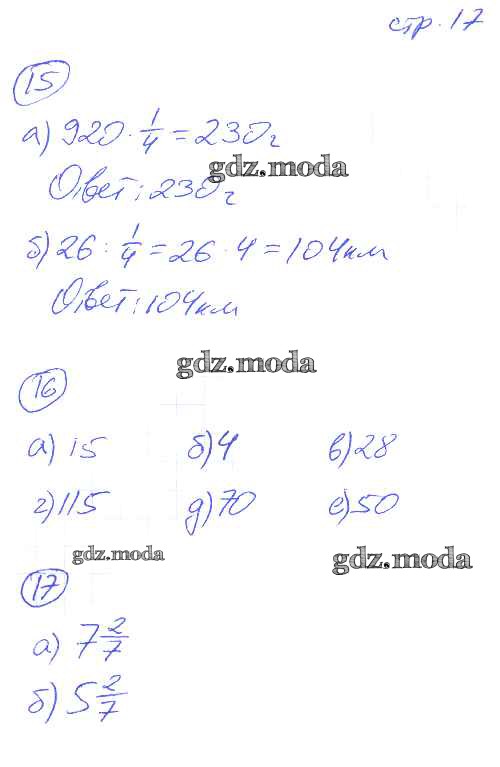 стр. 17
15
а) 920 · 1/4 = 230г
gdz.moda
Ответ: 230г
б) 26 : 1/4 = 26 · 4 = 104км
Ответ: 104км
gdz.moda
16
а) 15 б) 4 в) 28
г) 115 д) 70 е) 50
gdz.moda gdz.moda
17
а) 7 2/7
б) 5 2/7